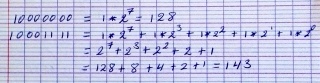 10000000 = 1*2⁷ = 128
10001111 = 1*2⁷ + 1*2³ + 1*2² + 1*2¹ + 1*2⁰
= 2⁷+2³+2²+2+1
= 128+8+4+2+1 = 143